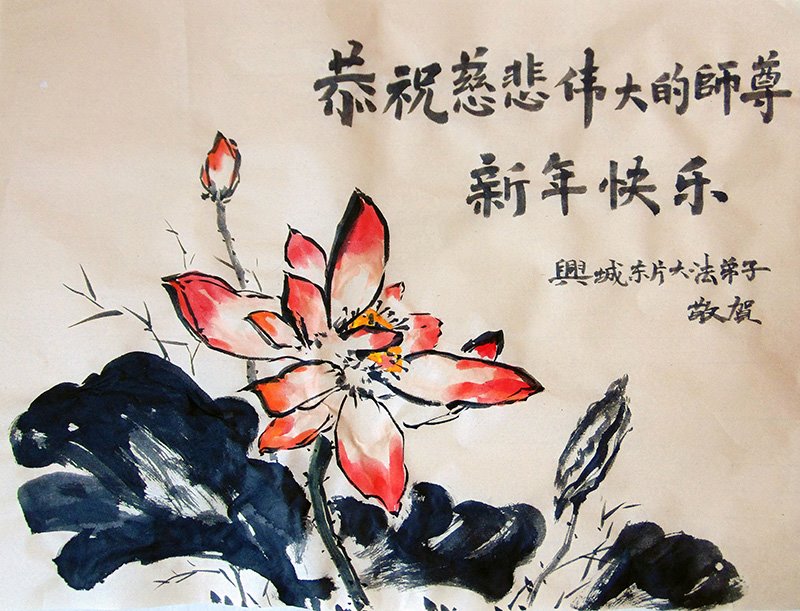 恭祝慈悲伟大的師尊
新年快乐
興城东片大法弟子
敬贺